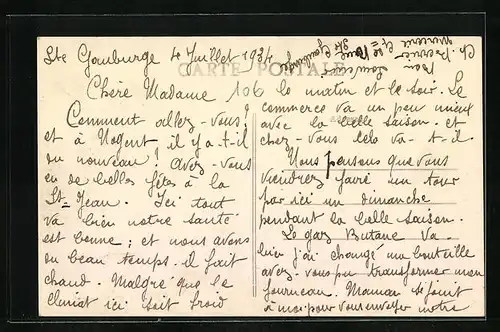 Ste Gauburge 4 Juillet 1934
CARTE POSTALE
Chère Madame
Comment allez-vous?
et à Nogent, il y a-t-il
du nouveau! Avez-vous
eu de belles fêtes à la
St Jean. Ici tout
va bien notre santé
est bonne; et nous avons
du beau temps. il fait
chaud. Malgré que le
climat ici soit froid
le matin et le soir. Le
commerce va un peu mieux
avec la belle saison. et
chez-vous cela va-t-il.
Nous pensons que vous
viendrez faire un tour
par ici un dimanche
pendant la belle saison.
Le gaz Butane va
bien j'ai changé ma bouteille
avez-vous pu transformer mon
fourneau. Maman se joint
à moi pour vous envoyer notre
bon souvenir
Ste Gauburge